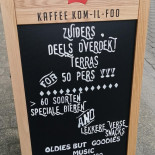 KAFFEE.KOM-IL-FOO
ZUIDERS
DEELS OVERDEKT
TERRAS
FOR 50 PERS !!!
> 60 SOORTEN
SPECIALE BIEREN
AND
LEKKERE VERSE
SNACKS
OLDIES BUT GOODIES
MUSIC